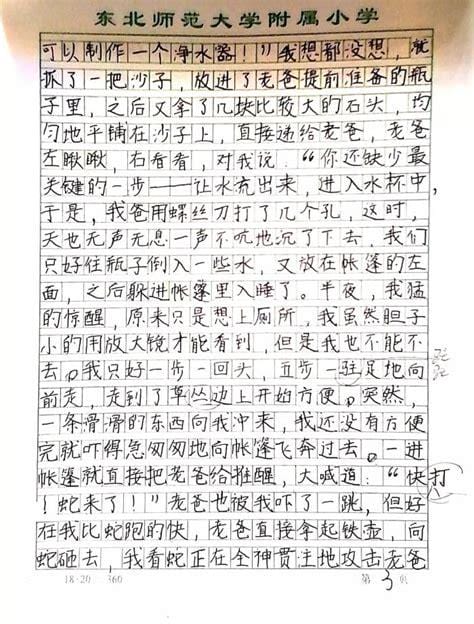 东北师范大学附属小学
可以制作一个净水器！”我想都没想，就
抓了一把沙子，放进了老爸提前准备的瓶
子里，之后又拿了几块比较大的石头，均
匀地平铺在沙子上，直接递给老爸，老爸
左瞅瞅，右看看，对我说：“你还缺少最
关键的一步——让水流出来，进入水杯中，
于是，我爸用螺丝刀打了几个孔，这时，
天也无声无息一声不吭地沉了下去，我们
只好往瓶子倒入一些水，又放在帐篷的左
面，之后躲进帐篷里入睡了。半夜，我猛
的惊醒，原来只是想上厕所，我虽然胆子
小的用放大镜才能看到，但是我也不能不
去。我只好一步一回头，五步一驻足地向
前走，走到了草丛边上开始方便。突然，
一条滑滑的东西向我冲来，我还没有方便
完就吓得急匆匆地向帐篷飞奔过去。一进
帐篷就直接把老爸给推醒，大喊道：“快打
！蛇来了！”老爸也被我吓了一跳，但好
在我比蛇跑的快，老爸直接拿起铁壶，向
蛇砸去，我看蛇正在全神贯注地攻击老爸
18·20 360 第3页